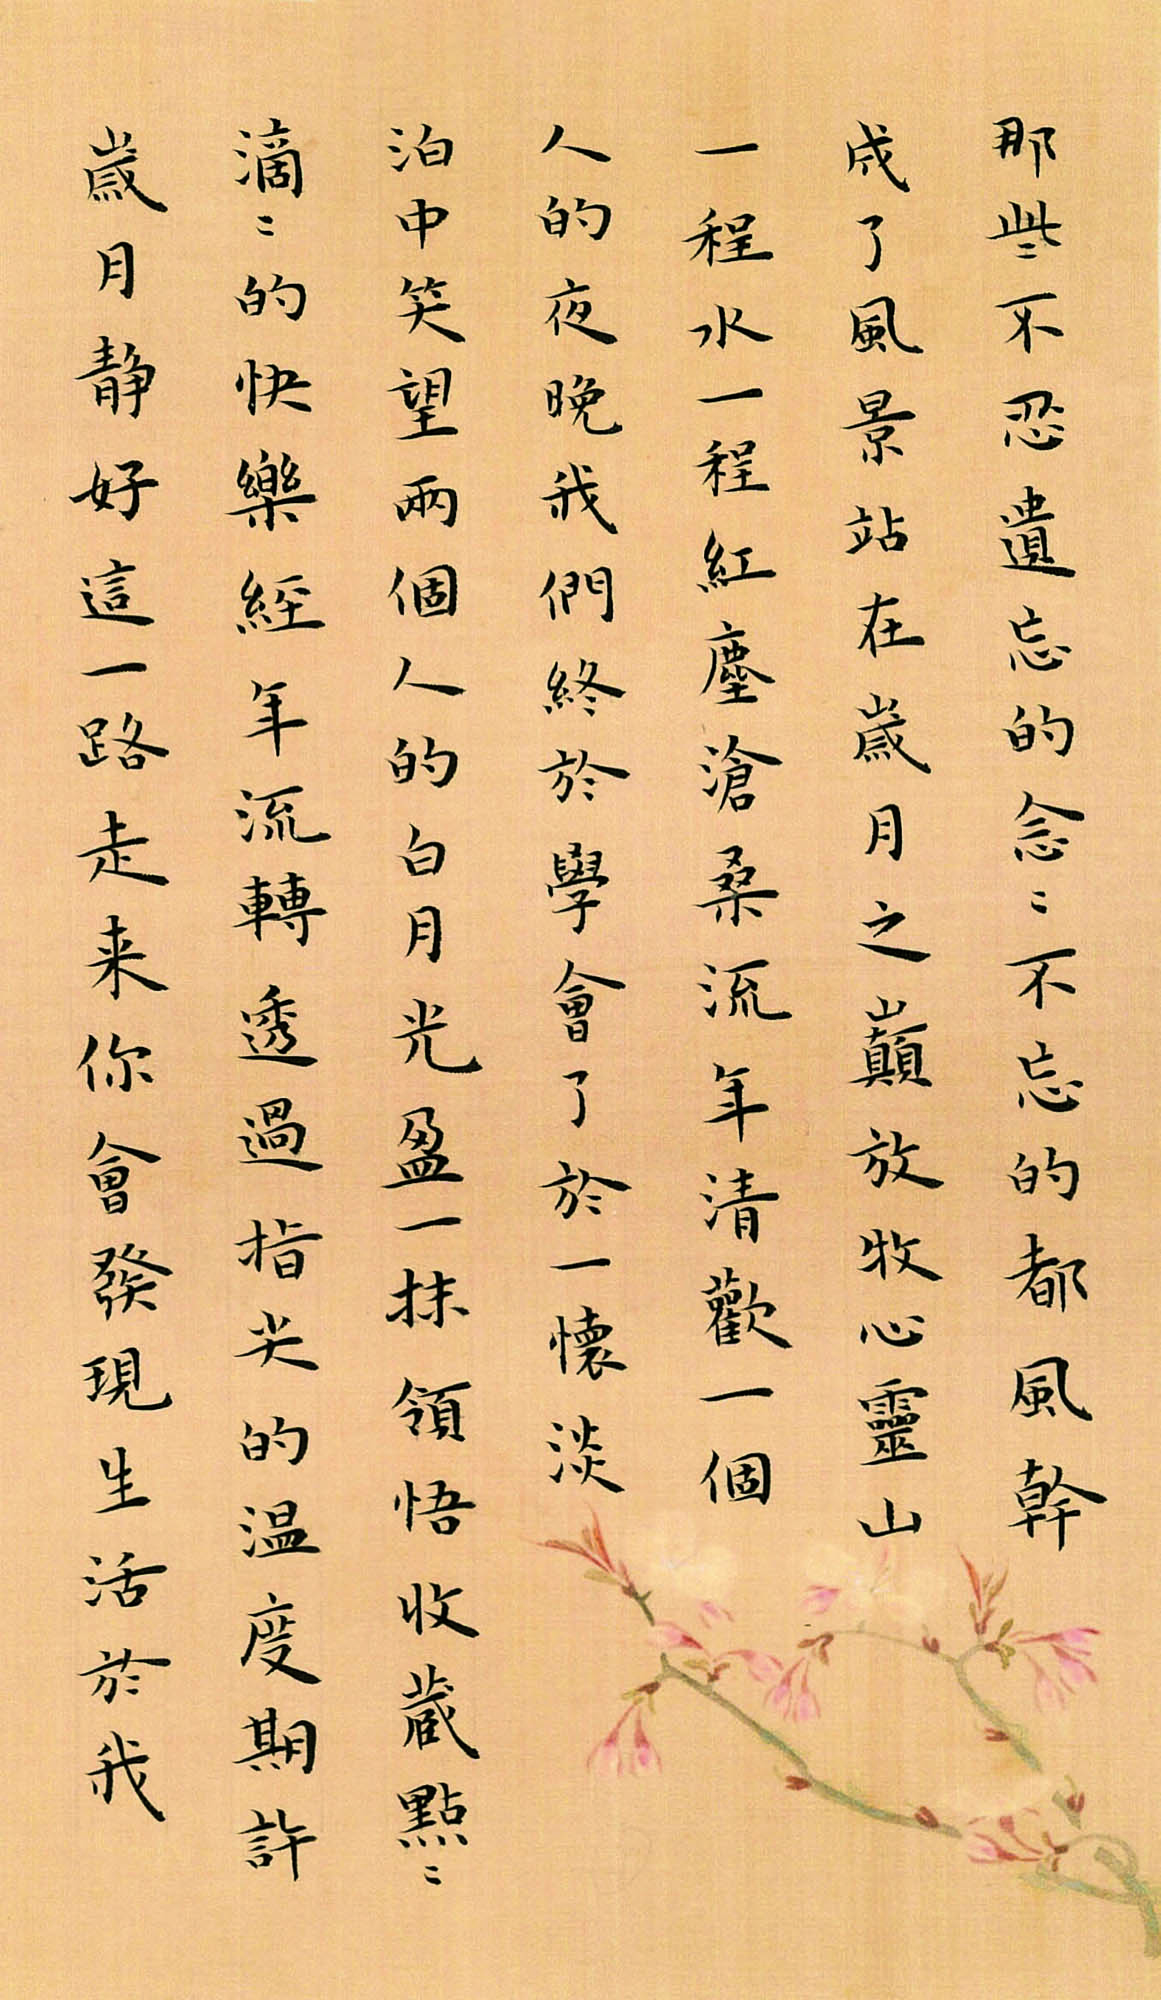 那些不忍遺忘的念〻不忘的都風幹
成了風景站在歲月之巔放牧心靈山
一程水一程紅塵滄桑流年清歡一個
人的夜晚我們終於學會了於一懷淡
泊中笑望兩個人的白月光盈一抹領悟收藏點〻
滴〻的快樂經年流轉透過指尖的温度期許
歲月靜好這一路走来你會發現生活於我